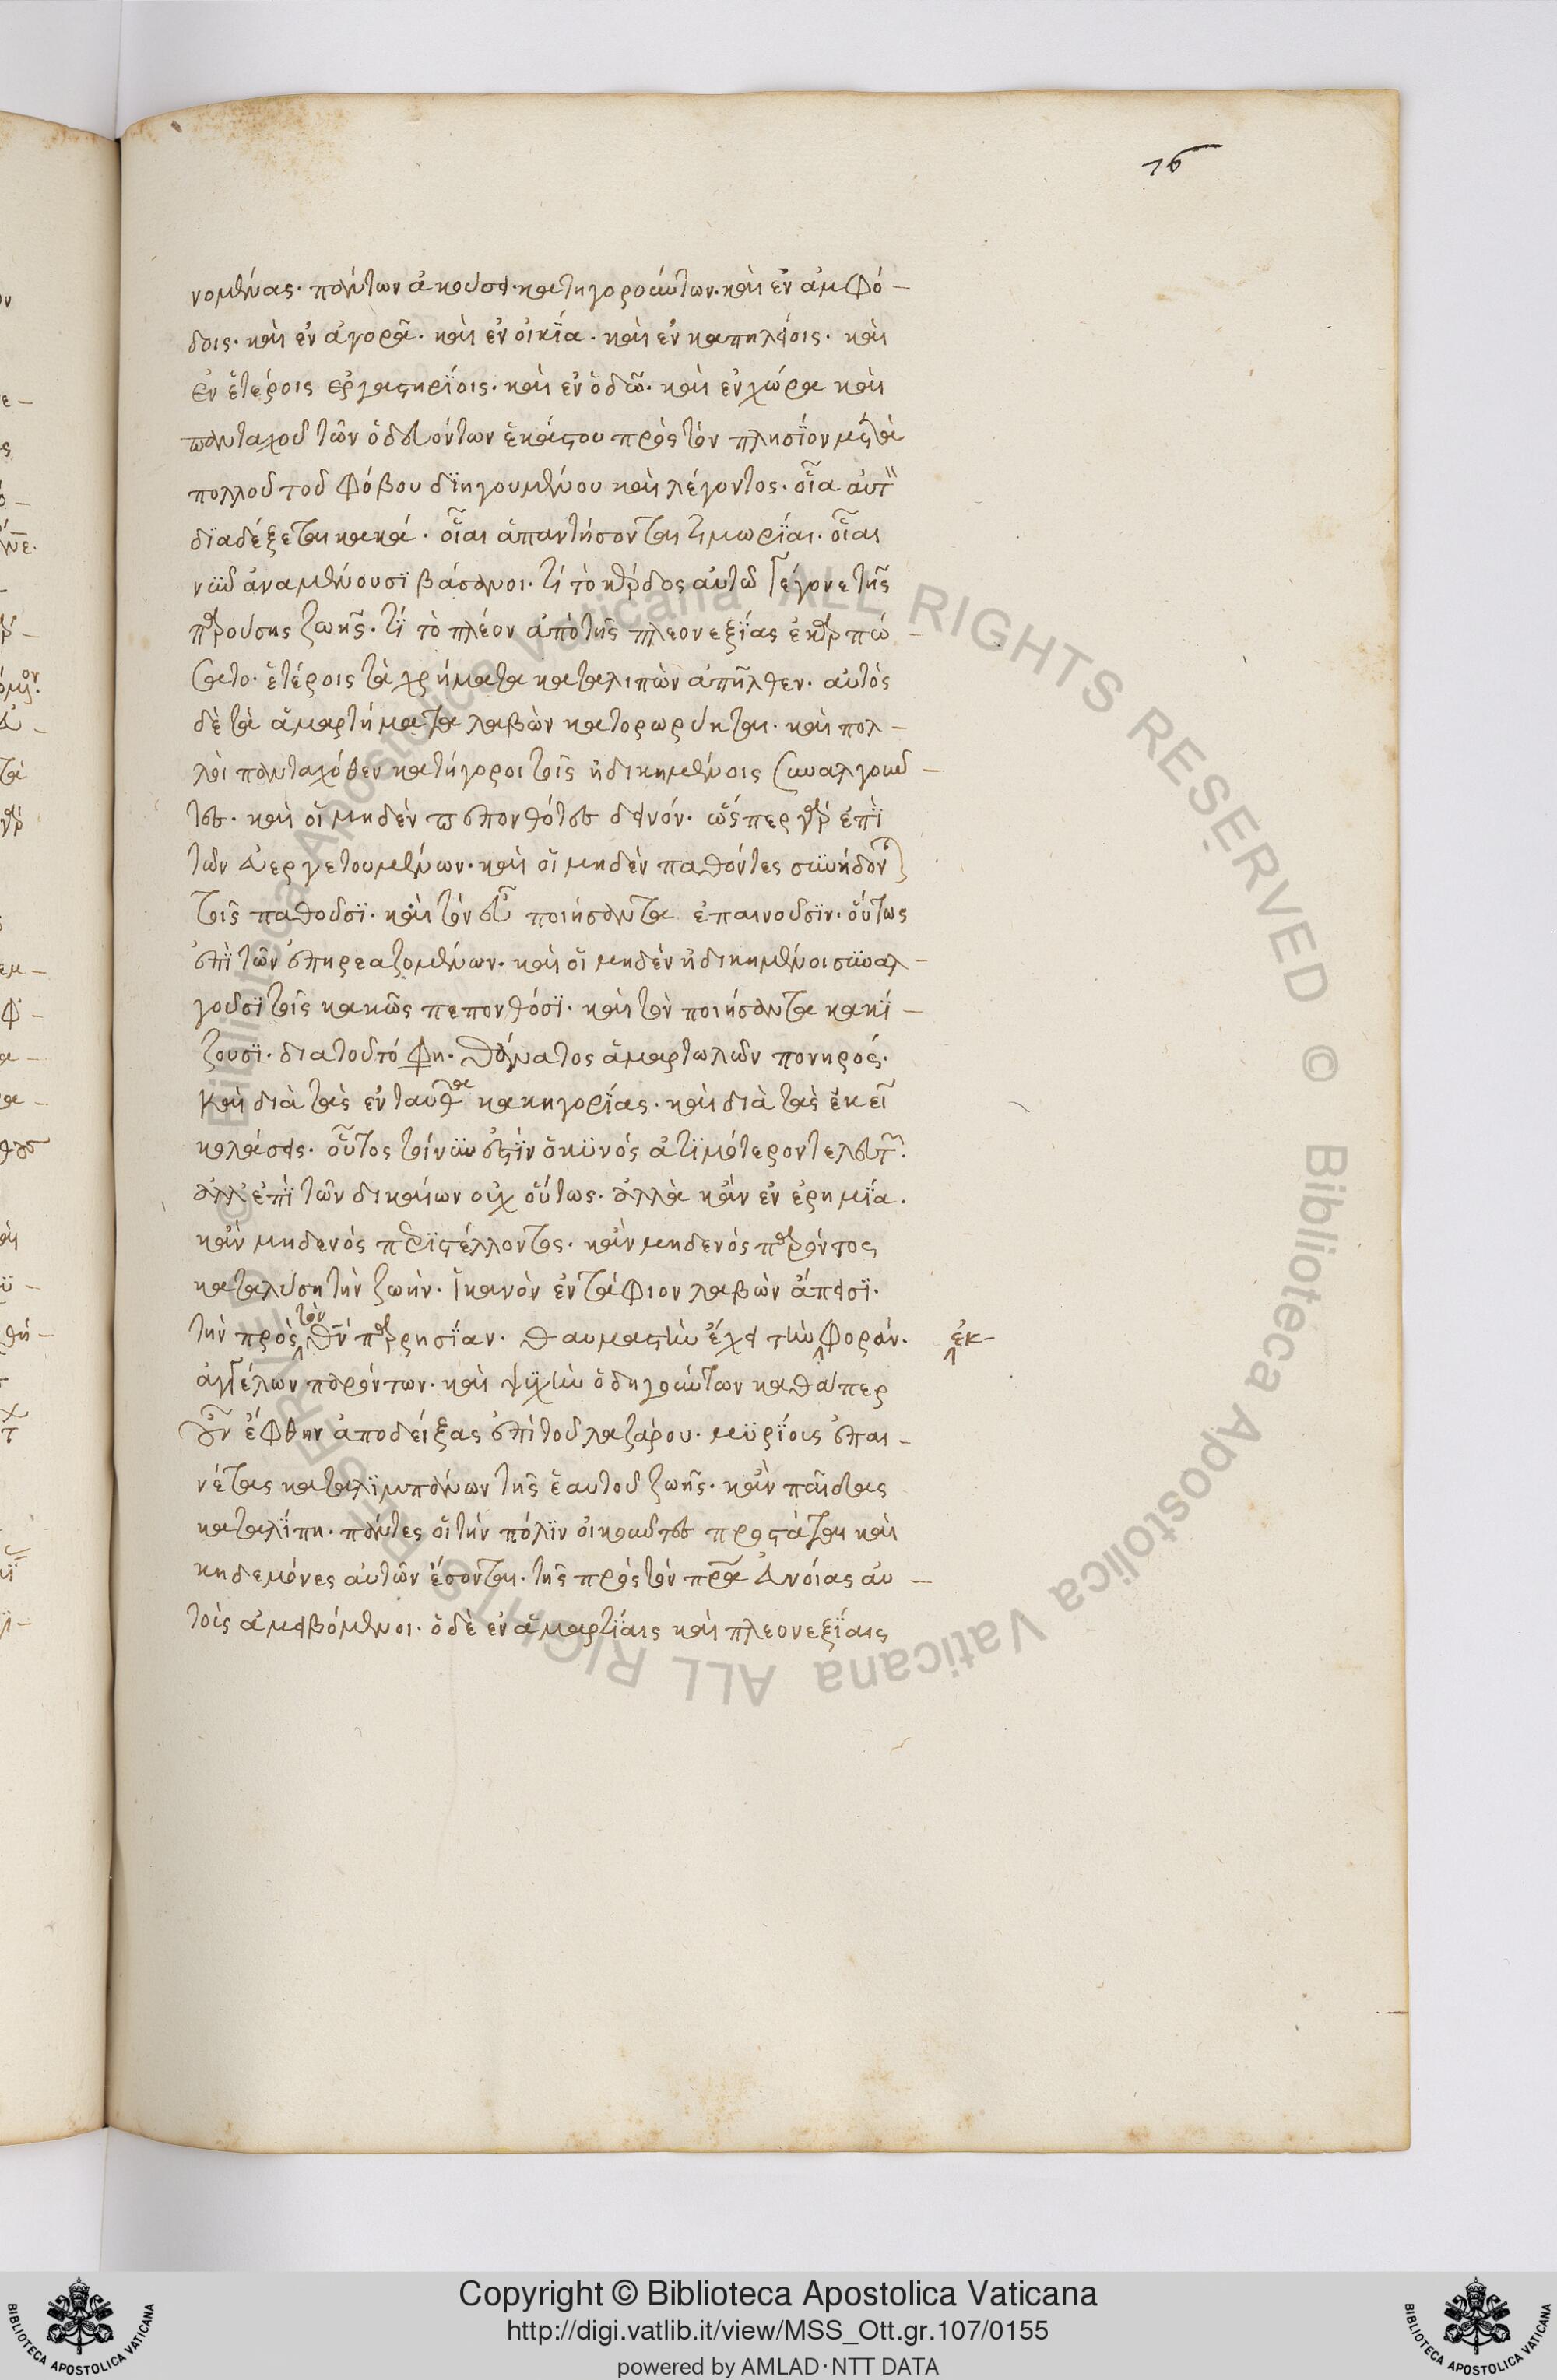 76
νομένας· πάντων ἀκούσει κατηγορούντων· καὶ ἐν ἀμφό-
δοις· καὶ ἐν ἀγορᾶ· καὶ ἐν οἰκΐα· καὶ ἐν καπηλείοις· καὶ
ἐν ἑτέροις ἐργαστηρΐοις· καὶ ἐν ὁδῶ· καὶ ἐν χώρα καὶ
πανταχοῦ τῶν ὁδευόντων ἑκάστου πρὸς τὸν πλησΐον μετὰ
πολλοῦ τοῦ φόβου δϊηγουμένου καὶ λέγοντος· οἷα αὐτ
δϊαδέξεται κακά· οἷαι ἀπαντήσονται τιμωρΐαι· οἷαι
νϋν ἀναμένουσϊ βάσανοι· τί τὸ κέρδος αὐτῶ γέγονε τῆς
παρούσης ζωῆς· τί τὸ πλέον ἀπὸ τῆς πλεονεξΐας ἐκαρπώ-
σατο· ἑτέροις τὰ χρήματα καταλιπὼν ἀπῆλθεν· αὐτὸς
δὲ τὰ ἁμαρτήματα λαβὼν κατορώρυκται· καὶ πολ-
λοὶ πανταχόθεν κατήγοροι τοῖς ἠδικημένοις συναλγοῦν-
τες· καὶ οἱ μηδὲν πεπονθότες δεινόν· ὥσπερ γὰρ ἐπῒ
τῶν εὐεργετουμένων· καὶ οἱ μηδὲν παθόντες σϋνήδοντ
τοῖς παθοῦσϊ· καὶ τὸν εὖ ποιήσαντα ἐπαινοῦσϊν· οὕτως
ἐπῒ τῶν ἐπηρεαζομένων· καὶ οἱ μηδὲν ἠδικημένοι σϋναλ-
γοῦσϊ τοῖς κακῶς πεπονθόσϊ· καὶ τὸν ποιήσαντα κακΐ-
ζουσϊ· διατοῦτό φη· θάνατος ἁμαρτωλῶν πονηρός·
καὶ διὰ τὰς ἐνταῦθα κακηγορΐας· καὶ διὰ τὰς ἐκεῖ
κολάσεις· οὗτος τοίνϋν ἐστϊν ὁ κϋνὸς ἀτϊμότερον τελευτ·
ἀλλ ἐπῒ τῶν δικαίων οὐχ οὕτως· ἀλλὰ κἂν ἐν ἐρημΐα·
κἂν μηδενὸς περϊστέλλοντος· κἂν μηδενὸς παρόντος
καταλύση τὴν ζωήν· ἱκανὸν ἐντάφιον λαβὼν ἄπεισϊ·
τὴν πρὸς τὸν θν παρρησΐαν· θαυμαστὴν ἔχει τὴν φοράν· ἐκ-
ἀγγέλων παρόντων· καὶ ψϋχὴν ὁδηγούντων καθάπερ
οὖν ἔφθην ἀποδείξας ἐπὶ τοῦ λαζάρου· μϋρΐοις ἐπαι-
νέτας καταλϊμπάνων τῆς ἑαυτοῦ ζωῆς· κἂν παῖδας
καταλΐπη· πάντες οἱ τὴν πόλϊν οἰκοῦντες προστάται καὶ
κηδεμόνες αὐτῶν ἔσονται· τῆς πρὸς τὸν πρα εὐνοίας αὐ-
τοὺς ἀμειβόμενοι· ὁ δὲ ἐν ἁμαρτΐαις καὶ πλεονεξΐαις
Copyright © Biblioteca Apostolica Vaticana
http://digi.vatlib.it/view/MSS_Ott.gr.107/0155
powered by AMLAD·NTT DATA
BIBLIOTECA APOSTOLICA VATICANA
BIBLIOTECA APOSTOLICA VATICANA
© Biblioteca Apostolica Vaticana ALL RIGHTS RESERVED © Biblioteca Apostolica Vaticana ALL RIGHTS RESERVED